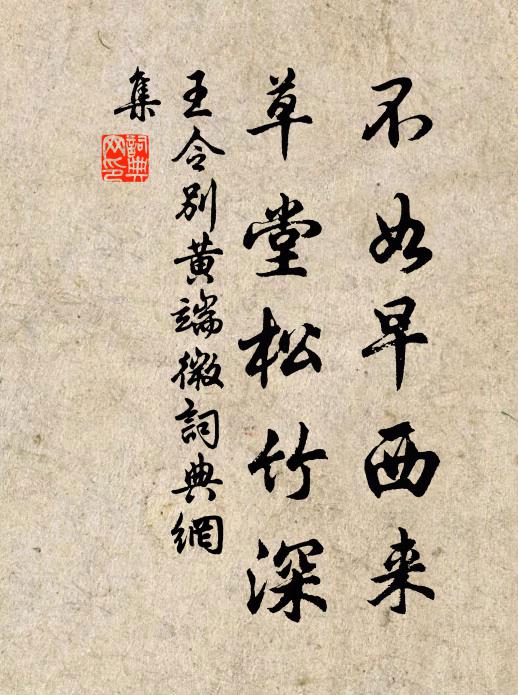 不如早西来
草堂松竹深
王令别黄端微詞典網
集
詞典網印